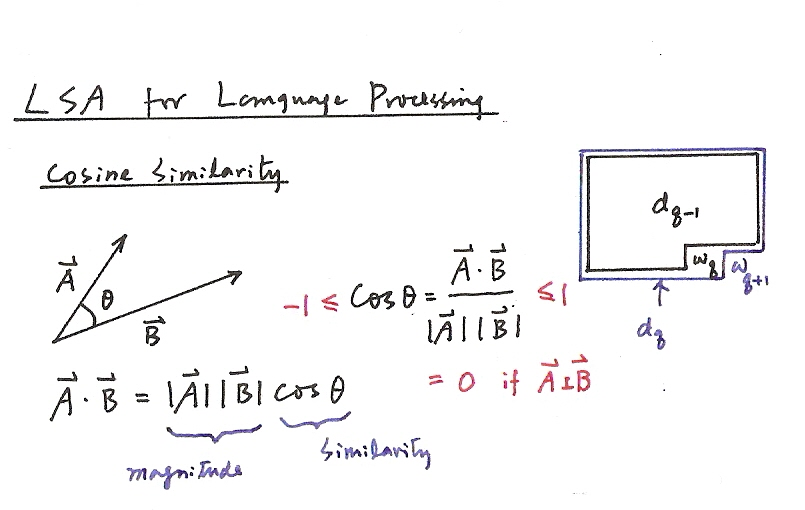 LSA for Language Processing
Cosine Similarity
A⃗
θ
B⃗
-1 ≤ cos θ = A⃗ · B⃗ / |A⃗| |B⃗| ≤ 1
= 0 if A⃗ ⊥ B⃗
A⃗ · B⃗ = |A⃗| |B⃗| cos θ
magnitude
similarity
d_{q-1}
w_q
w_{q+1}
d_q